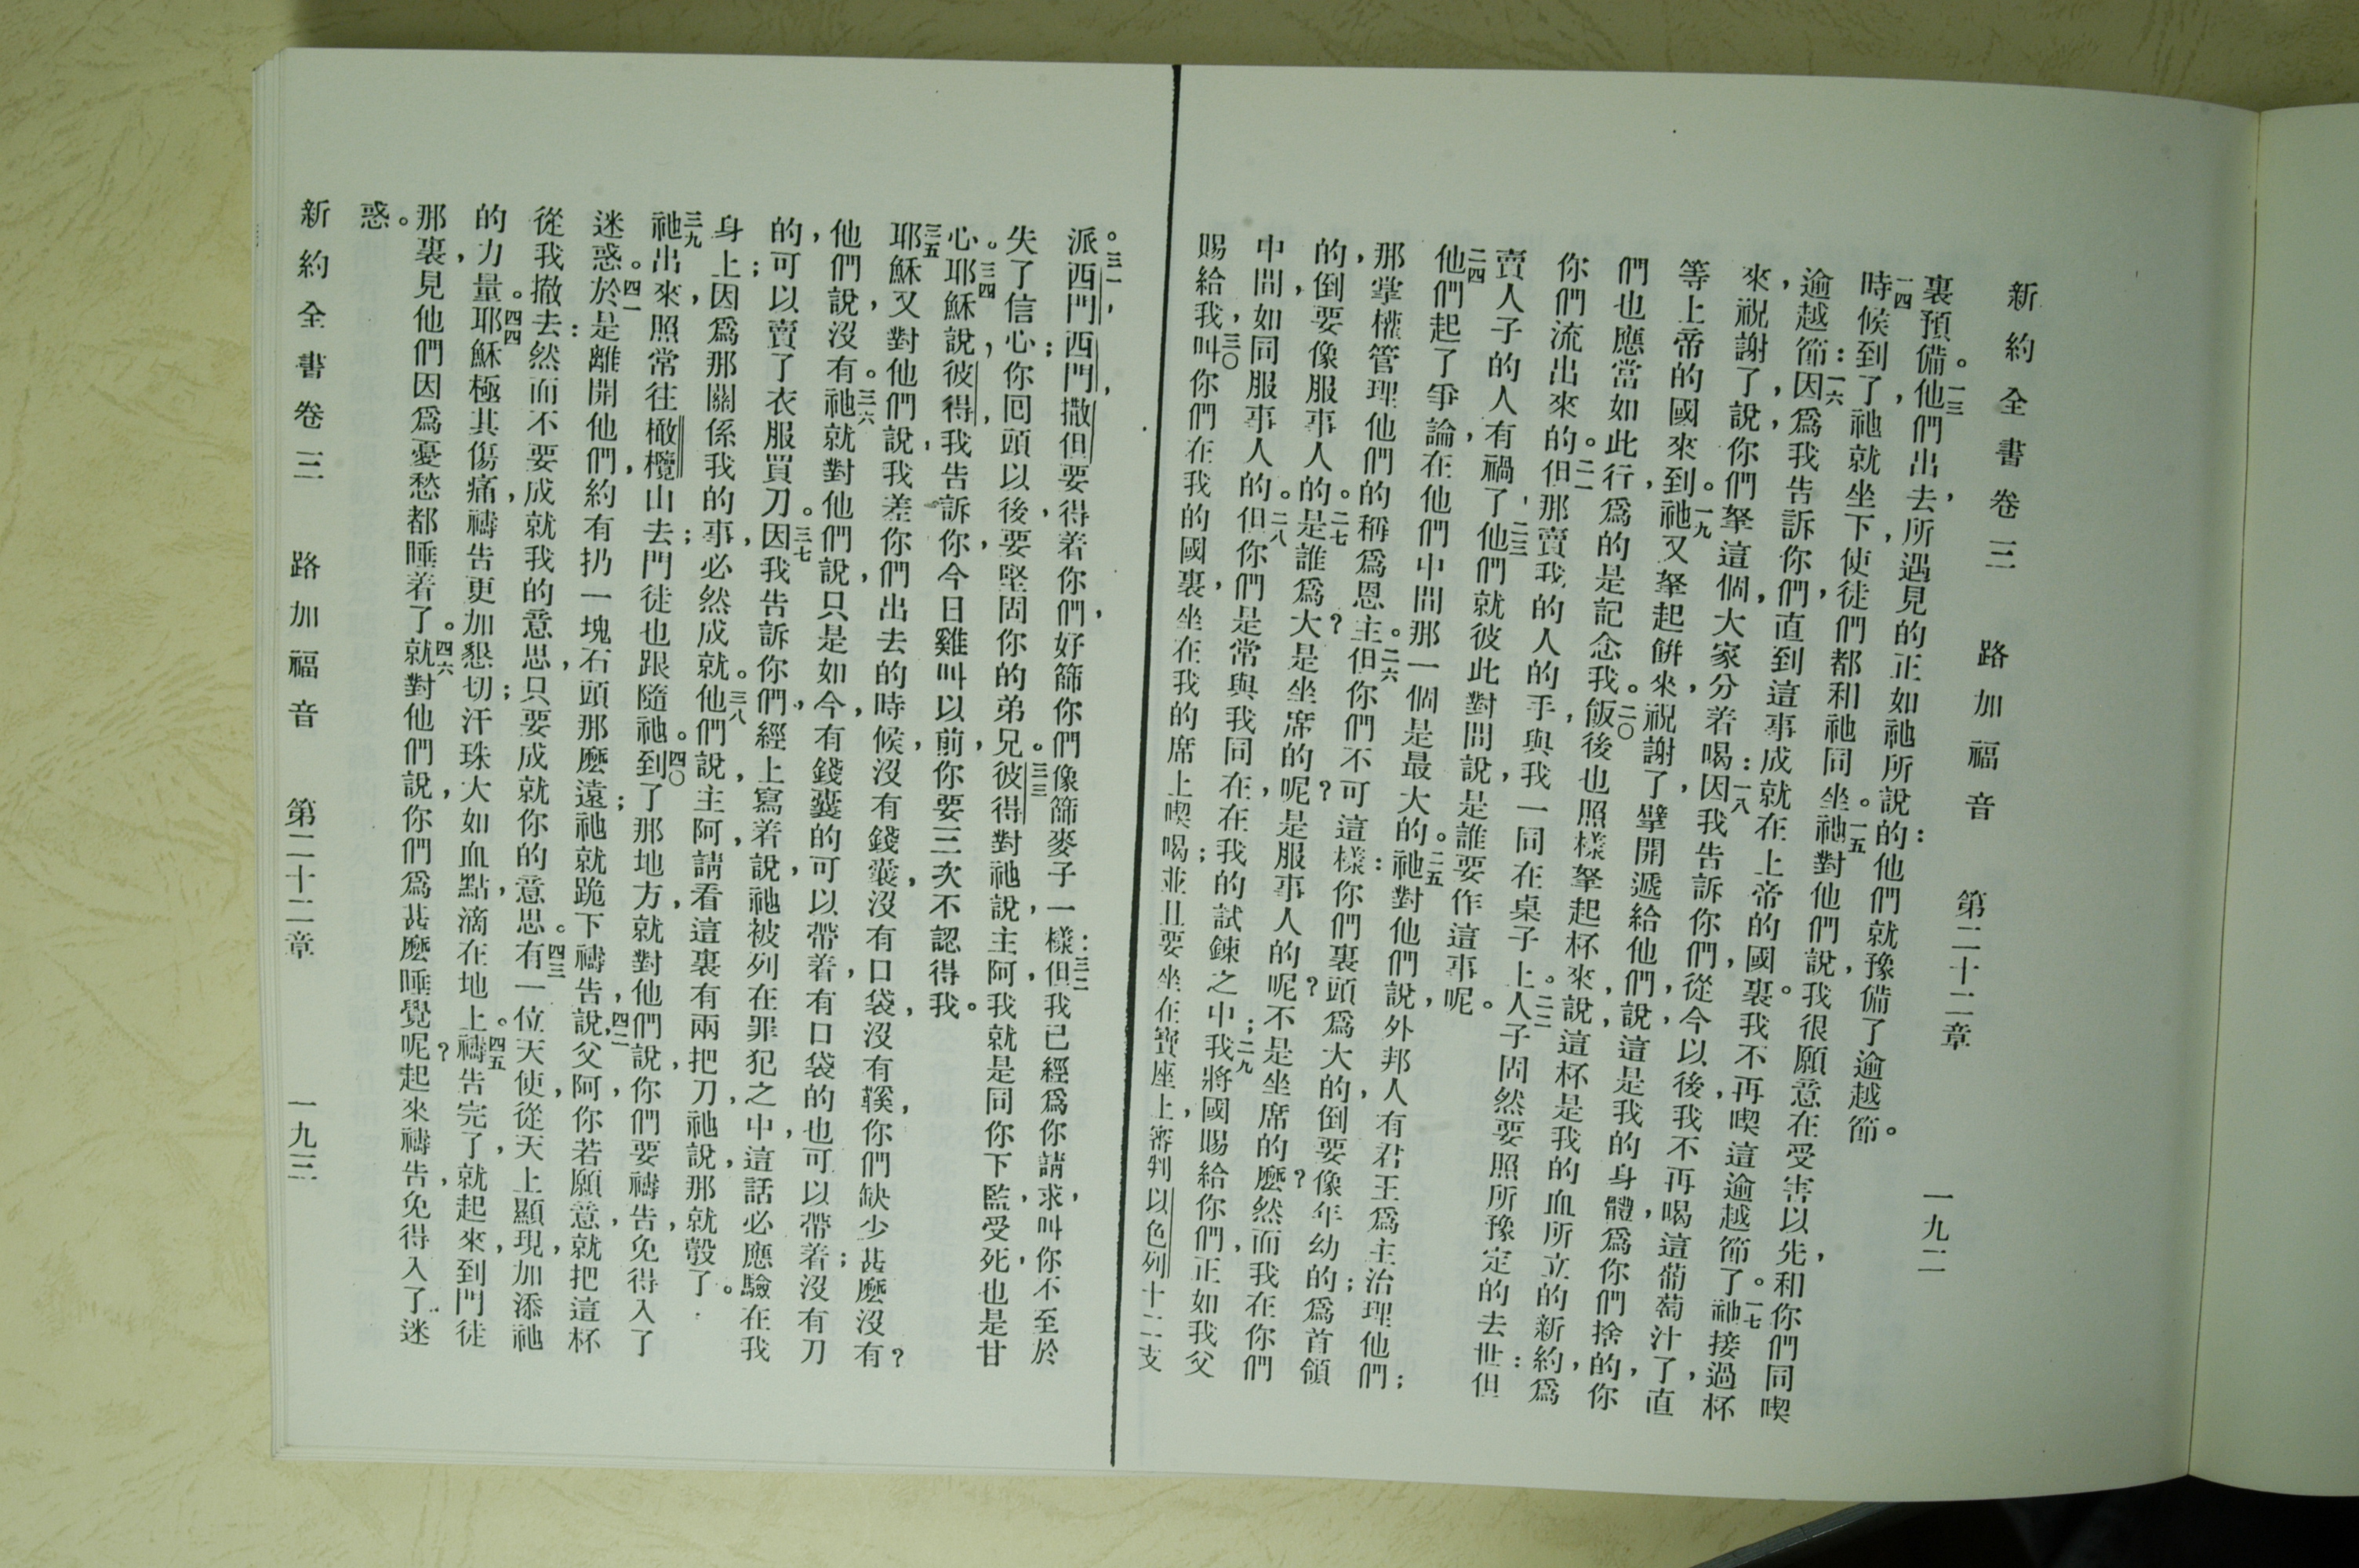 新約全書卷三　路加福音　第二十二章　一九二
裏預備。一三他們出去，所遇見的正如祂所說的：他們就豫備了逾越節。
一四時候到了，祂就坐下，使徒們都和祂同坐。一五祂對他們說，我很願意在受害以先，和你們同喫
逾越節：一六因為我告訴你們，直到這事成就在上帝的國裏，我不再喫這逾越節了。一七祂接過杯
來，祝謝了，說，你們拏這個，大家分着喝：一八因我告訴你們，從今以後，我不再喝這葡萄汁了，直
等上帝的國來到。一九祂又拏起餅來，祝謝了，擘開遞給他們，說，這是我的身體，為你們捨的，你
們也應當如此行，為的是記念我。二〇飯後也照樣拏起杯來，說，這杯是我的血所立的新約，為
你們流出來的。二一但那賣我的人的手，與我一同在桌子上。二二人子固然要照所豫定的去世：但
賣人子的人有禍了，二三他們就彼此對問，說，是誰要作這事呢。
二四他們起了爭論，在他們中間那一個是最大的。二五祂對他們說，外邦人有君王為主治理他們；
那掌權管理他們的，稱為恩主。二六但你們不可這樣：你們裏頭為大的，倒要像年幼的；為首領
的，倒要像服事人的。二七是誰為大？是坐席的呢？是服事人的呢？不是坐席的麼？然而我在你們
中間，如同服事人的。二八但你們是常與我同在，在我的試鍊之中；二九我將國賜給你們，正如我父
賜給我，三〇叫你們在我的國裏，坐在我的席上喫喝；並且要坐在寶座上，審判以色列十二支
派。三一西門，西門，撒但要得着你們，好篩你們，像篩麥子一樣：三二但我已經為你請求，叫你不至於
失了信心；你回頭以後，要堅固你的弟兄。三三彼得對祂說，主阿，我就是同你下監，受死，也是甘
心。三四耶穌說，彼得，我告訴你，今日雞叫以前，你要三次不認得我。
三五耶穌又對他們說，我差你們出去的時候，沒有錢囊，沒有口袋，沒有鞵，你們缺少甚麼沒有？
他們說，沒有。三六祂就對他們說，只是如今，有錢囊的可以帶着，有口袋的也可以帶着；沒有刀
的，可以賣了衣服買刀。三七因我告訴你們，經上寫着，說，祂被列在罪犯之中，這話必應驗在我
身上；因為那關係我的事，必然成就。三八他們說，主阿，請看這裏有兩把刀，祂說，那就彀了。
三九祂出來，照常往橄欖山去；門徒也跟隨祂。四〇到了那地方，就對他們說，你們要禱告，免得入了
迷惑。四一於是離開他們，約有扔一塊石頭那麼遠；祂就跪下禱告，四二說，父阿，你若願意，就把這杯
從我撤去：然而不要成就我的意思，只要成就你的意思。四三有一位天使，從天上顯現，加添祂
的力量。四四耶穌極其傷痛，禱告更加懇切；汗珠大如血點，滴在地上。四五禱告完了，就起來，到門徒
那裏，見他們因為憂愁都睡着了。四六就對他們說，你們為甚麼睡覺呢？起來禱告，免得入了迷
惑。
新約全書卷三　路加福音　第二十二章　一九三